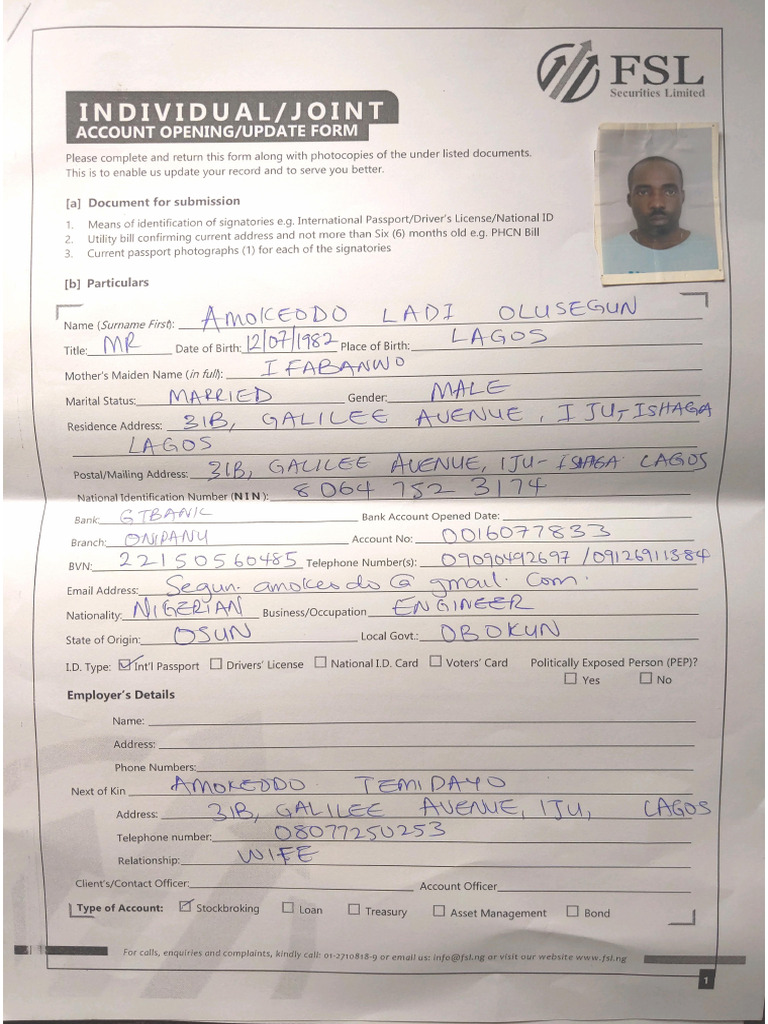 FSL
Securities Limited
INDIVIDUAL/JOINT
ACCOUNT OPENING/UPDATE FORM
Please complete and return this form along with photocopies of the under listed documents.
This is to enable us update your record and to serve you better.
[a] Document for submission
1. Means of identification of signatories e.g. International Passport/Driver's License/National ID
2. Utility bill confirming current address and not more than Six (6) months old e.g. PHCN Bill
3. Current passport photographs (1) for each of the signatories
[b] Particulars
Name (Surname First): AMOKEODO LADI OLUSEGUN
Title: MR Date of Birth: 12/07/1982 Place of Birth: LAGOS
Mother's Maiden Name (in full): IFABANWO
Marital Status: MARRIED Gender: MALE
Residence Address: 31B, GALILEE AVENUE, IJU-ISHAGA
LAGOS
Postal/Mailing Address: 31B, GALILEE AVENUE, IJU-ISHAGA LAGOS
National Identification Number (NIN): 8064 752 3174
Bank: GTBANK Bank Account Opened Date:
Branch: ONIPANU Account No: 0016077833
BVN: 22150560485 Telephone Number(s): 09090492697 / 09126911384
Email Address: Segun.amokeodo@gmail.com.
Nationality: NIGERIAN Business/Occupation ENGINEER
State of Origin: OSUN Local Govt.: OBOKUN
I.D. Type: Int'l Passport Drivers' License National I.D. Card Voters' Card Politically Exposed Person (PEP)?
Yes No
Employer's Details
Name:
Address:
Phone Numbers:
Next of Kin AMOKEODO TEMIDAYO
Address: 31B, GALILEE AVENUE, IJU, LAGOS
Telephone number: 08077250253
Relationship: WIFE
Client's/Contact Officer: Account Officer
Type of Account: Stockbroking Loan Treasury Asset Management Bond
For calls, enquiries and complaints, kindly call: 01-2710818-9 or email us: info@fsl.ng or visit our website www.fsl.ng
1